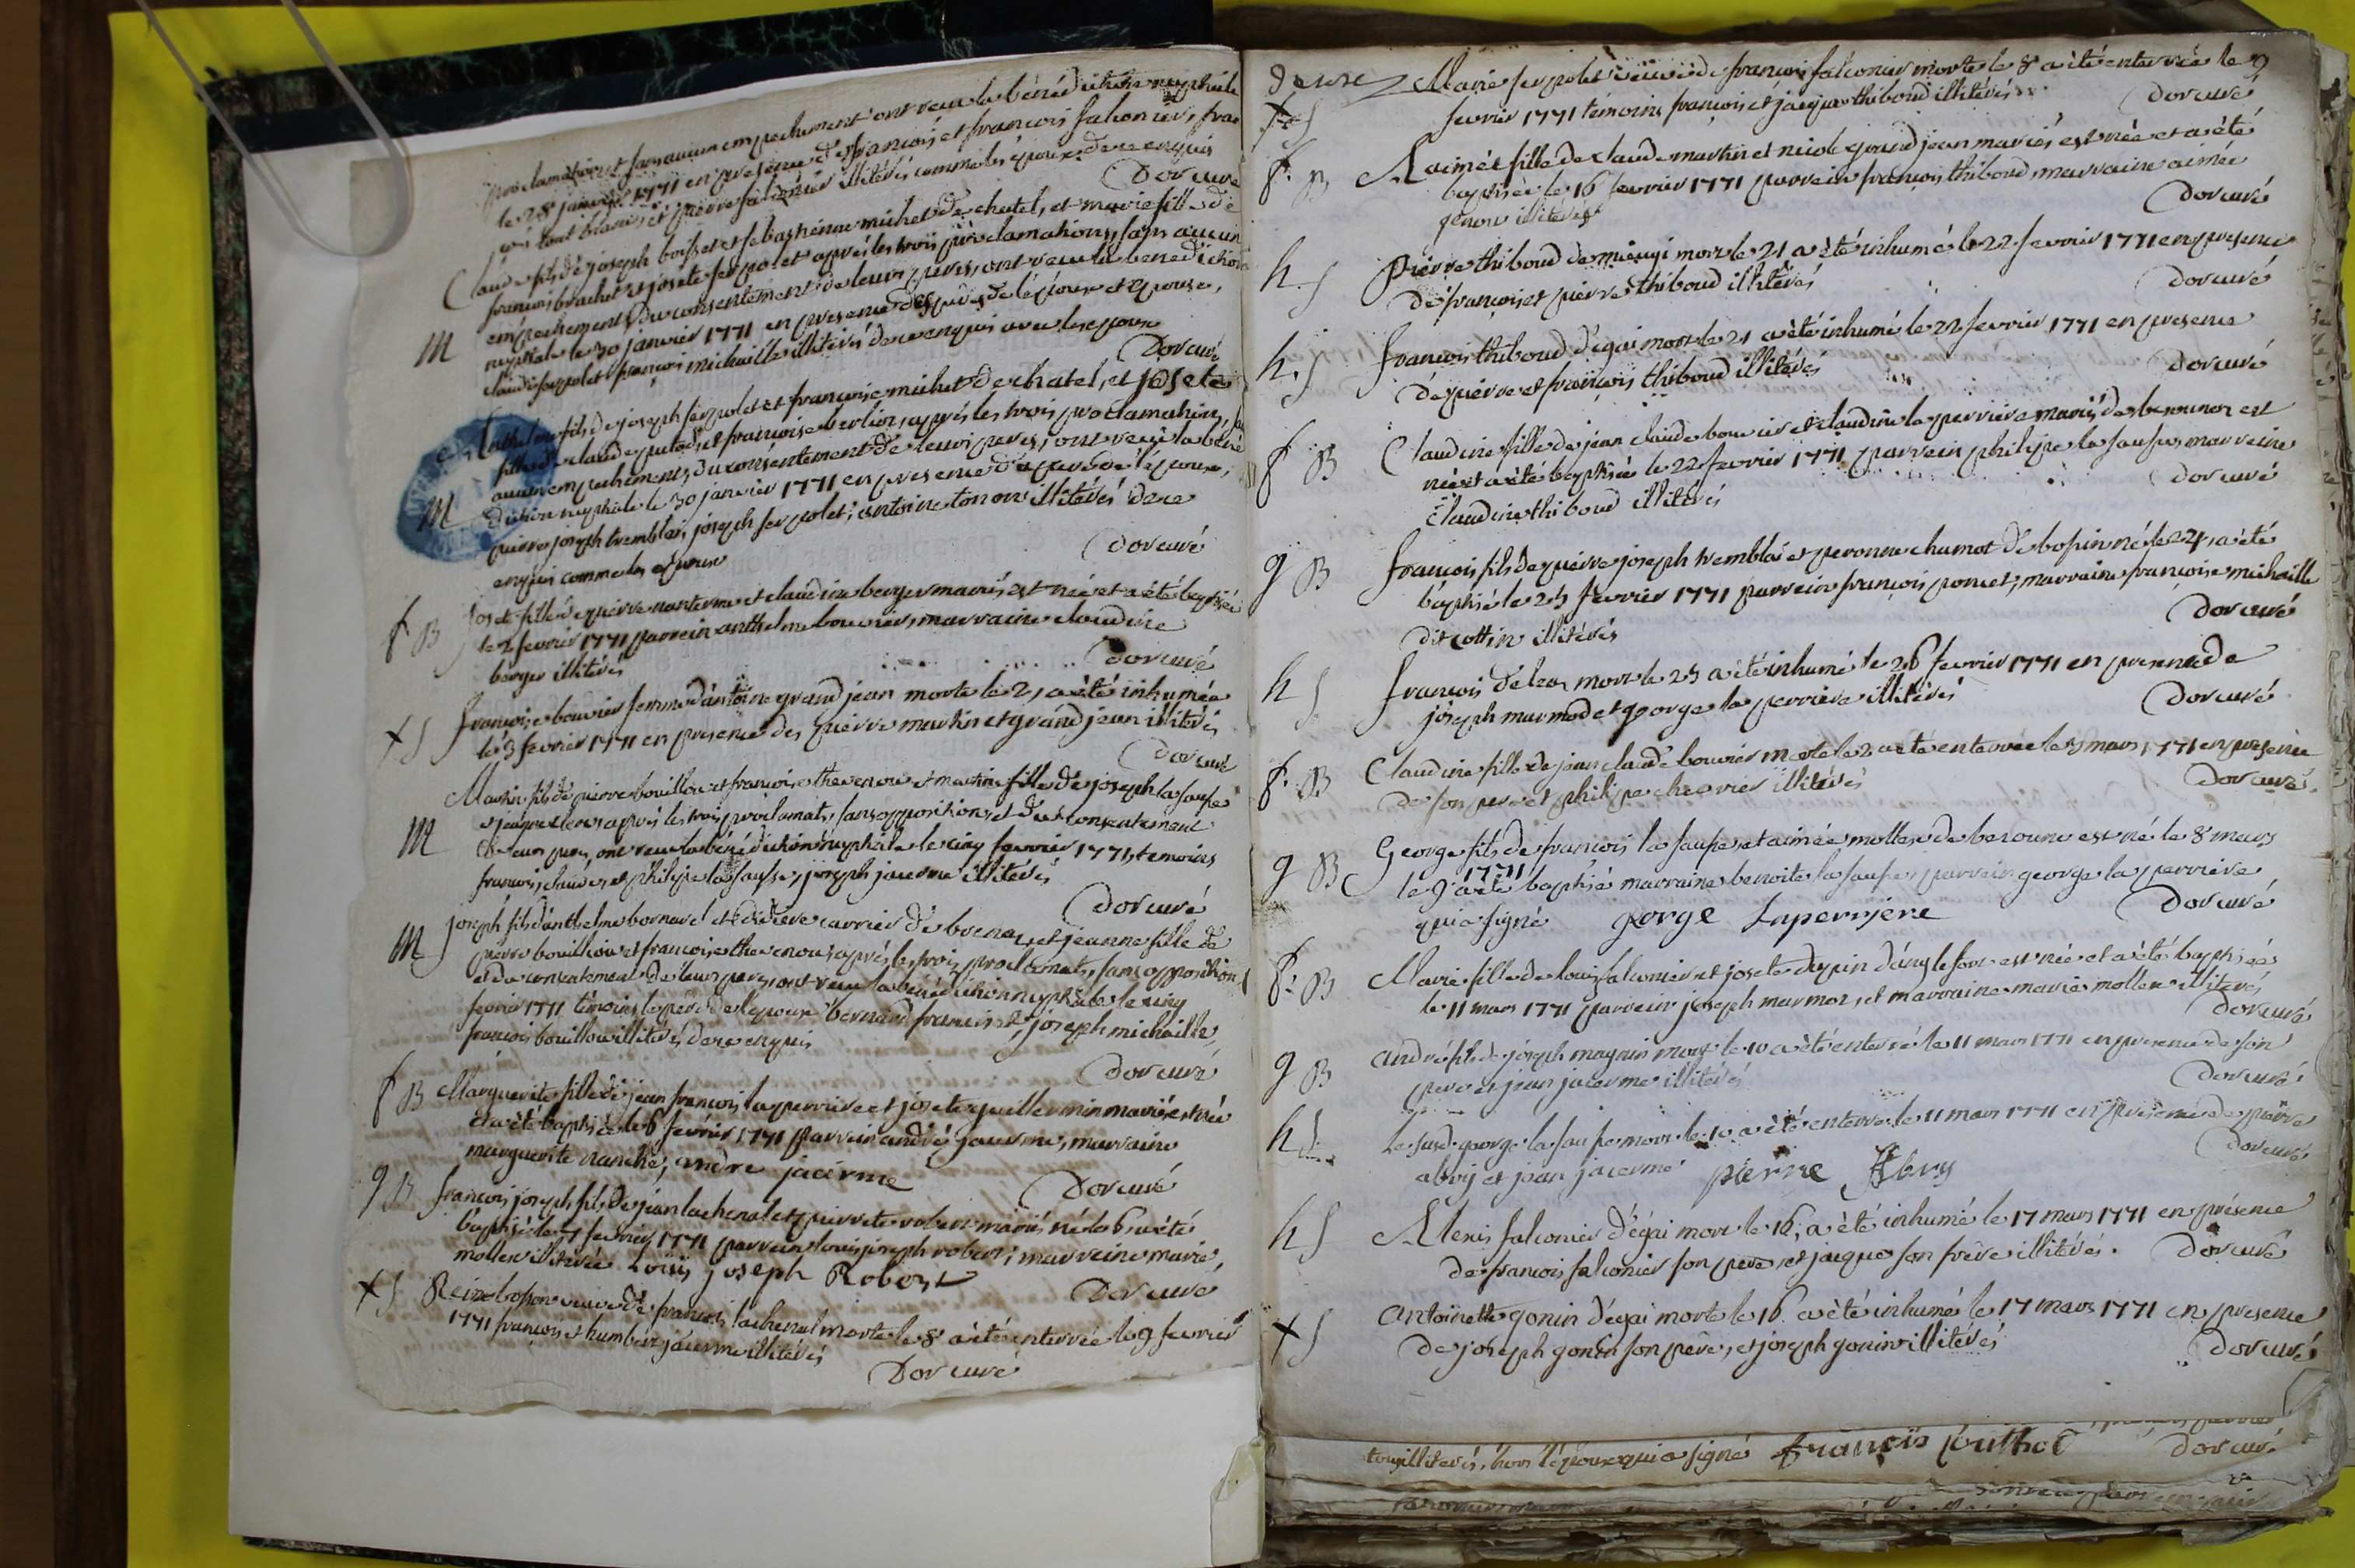 proclamations et sans aucun empechement ont recu la bénédiction nuptiale
le 28 janvier 1771 en presence de françois et francois falconier, frac
çois tout blanc, et pierre falconier illitérés comme les époux de ce enquis
Dor curé
Claude fils de joseph boisset et sebastienne michet de chatel, et marie fille de
francois brachet et joséte serpolet après les trois proclamations, sans aucun
M empechement, du consentement de leurs peres, ont recu la benediction
nuptiale le 30 janvier 1771 en presence des peres de lépoux et epouse,
claude serpolet françois michaille illitérés de ce enquis avec les epoux
Dor curé
Anthelme fils de joseph serpolet et francoise michet de chatel, et josete
fille de claude putod, et francoise berlioz, après les trois proclamations, sans
aucun empechement, du consentement de leurs peres, ont reçu la béné
M diction nuptiale le 30 janvier 1771 en presence du pere de lépoux,
pierre joseph tremblai, joseph serpolet, antoine tonon illitérés de ce
enquis comme les epoux
Dor curé
f B Josete fille de pierre nanterme et claudine berger mariés est née et a été baptisée
le 2 fevrier 1771 parrein anthelme bouvier, marraine claudine
berger illitérés
Dor curé
+ S françoise bouvier femme d'antoine grand jean morte le 2, a été inhumée
le 3 fevrier 1771 en presence des pierre martin et grand jean illitérés
Dor curé
Martin fils de pierre bouillou et françoise thevenou et martine fille de joseph la saufe
M après les trois proclamats, sans opposition, et du consentement
de leurs peres, ont recu la bénédiction nuptiale le cinq fevrier 1771, temoins
francois, claude, et philipe la saufe, joseph jacerme illitérés
Dor curé
joseph fils d'anthelme bornard et didiere carrier de brenaz, et jeanne fille de
M pierre bouillou et francoise thevenou après les trois proclamats, sans opposition
et du consentement de leurs peres, ont recu la bénédiction nuptiale le cinq
fevrier 1771 témoins le pere de lépoux bernard francois et joseph michaille,
francois bouillou illitérés de ce enquis
Dor curé
f B Marguerite fille de jean francois laperriere et josete guillermin mariés est née
et a été baptisée le 6 fevrier 1771 parrein andré jacerme, marraine
marguerite nanche, andre jacerme
Dor curé
g B francois joseph fils de jean lachenal et pierrete robert mariés né le 6 a été
baptisé le 7 fevrier 1771 parrein louis joseph robert, marraine marie
mollex illitérée Louis joseph Robert
Dor curé
+ S Reine bosson veuve de francois lachenal morte le 8 a été enterrée le 9 fevrier
1771 francois et humbert jacerme illitérés
Dor curé
deuxe Marie serpolet veuve de francois falconier morte le 8 a été enterrée le 9
+ S fevrier 1771 témoins francois et jacque thiboud illitérés
Dor curé
f. B Aimée fille de claude martin et nicole grand jean mariés est née et a été
baptisée le 16 fevrier 1771 parrein françois thiboud, marraine aimée
genou illitérés
Dor curé
h. S Pierre thiboud de mieugi mort le 21 a été inhumé le 22 fevrier 1771 en presence
de françois et pierre thiboud illitérés
Dor curé
h. S francois thiboud d'egai mort le 21 a été inhumé le 22 fevrier 1771 en presence
de pierre et françois thiboud illitérés
Dor curé
f B Claudine fille de jean claude bouvier et claudine la perriere mariés de besounoz est
née et a été baptisée le 22 fevrier 1771 parrein philipe la saufe, marreine
claudine thiboud illitérés
Dor curé
g B francois fils de pierre joseph tremblai et peronne chamot de bossin né le 24, a été
baptisé le 25 fevrier 1771 parrein françois poncet, marraine françoise michaille
dit cottin illitérés
Dor curé
h S francois délez mort le 25 a été inhumé le 26 fevrier 1771 en presence de
joseph marmod et george la perriere illitérés
Dor curé
f. B Claudine fille de jean claude bouvier morte le 2 a été enterrée le 3 mars 1771 en presence
de son pere et philipe chervier illitérés
Dor curé
George fils de francois la saufe et aimée mollex de besoune est né le 8 mars
1771
g B le 9 a été baptisé marraine benoite la saufe, parrein george la perriere
qui a signé gorge Laperrjere
Dor curé
f. B Marie fille de louis falconier et josete dupin d'anglefort est née et a été baptisée
le 11 mars 1771 parrein joseph marmoz, et marraine marie mollex illitérés
Dor curé
g B andré fils de joseph magnin mort le 10 a été enterré le 11 mars 1771 en presence de son
pere et jean jacerme illitérés
Dor curé
h S Le sud. george la saufe mort le 10 a été enterré le 11 mars 1771 en presence de pierre
abry et jean jacermé pierre Abry
Dor curé
h S Alexis falconier d'égai mort le 16, a été inhumé le 17 mars 1771 en présence
de francois falconier son pere, et jaque son frére illitérés.
Dor curé
+ S antoinette gonin d'égai morte le 16 a été inhumé le 17 mars 1771 en presence
de joseph gonin son père, et joseph gonin illitérés
Dor curé
tous illiterés, hors lépoux qui a signé francois Couthod
Dor curé